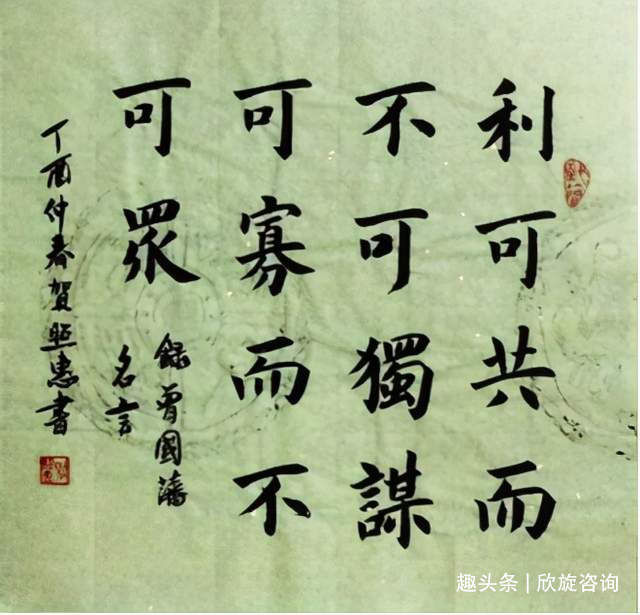 利可共而
不可獨謀
可寡而不
可眾
錄曾國藩
名言
丁酉仲春賀惠書
趣头条 | 欣旋咨询